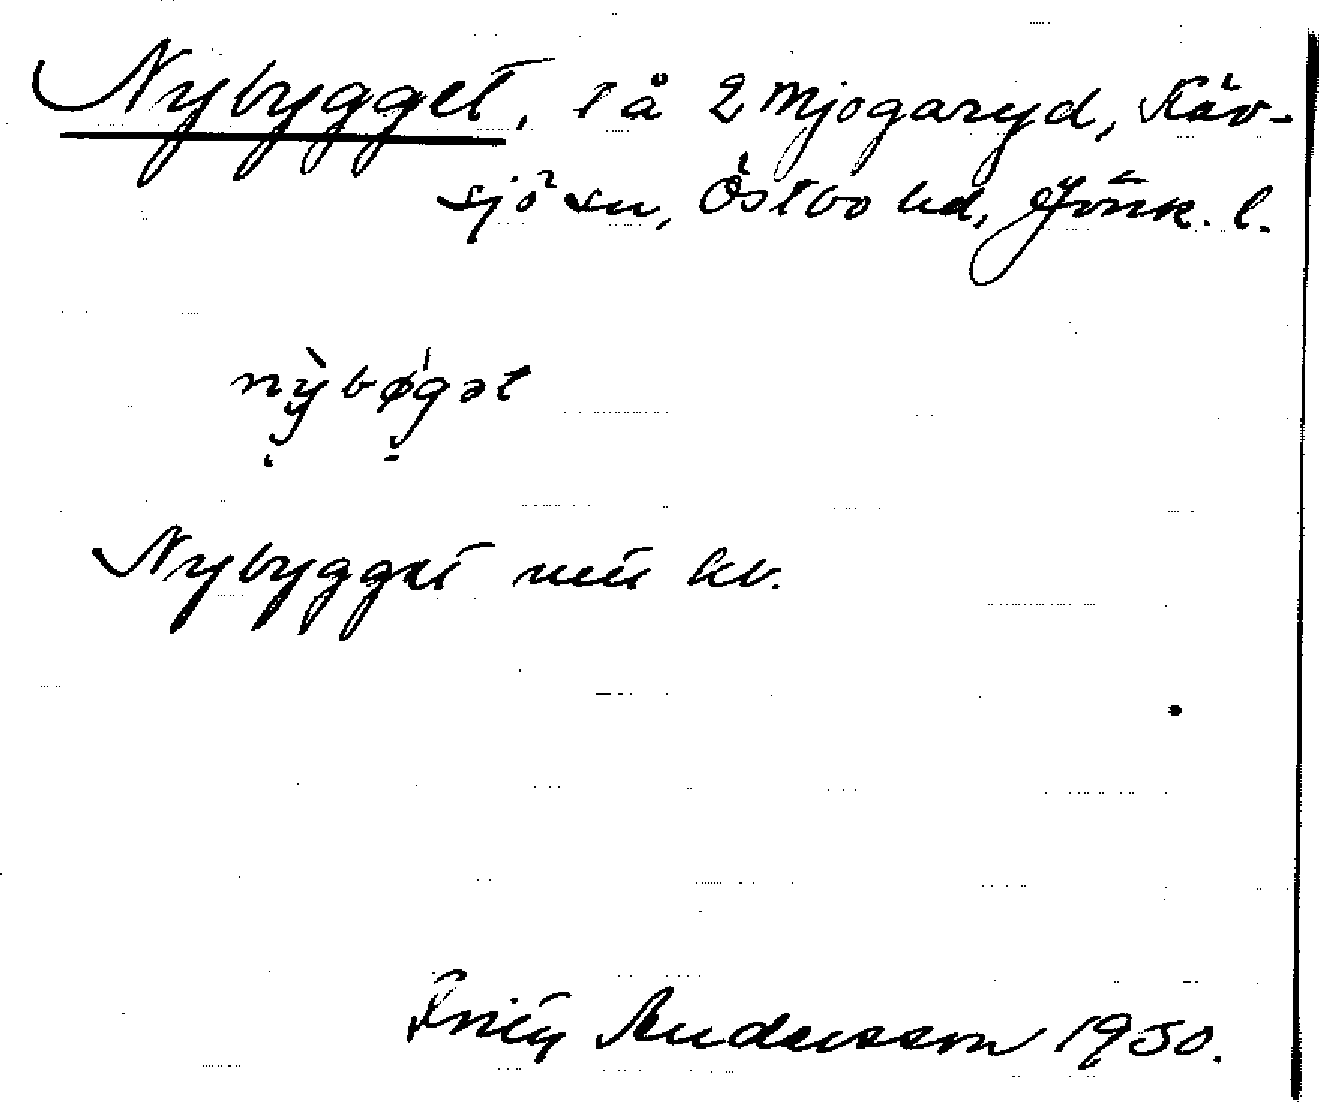 Nybygget, l å 2 Mjogaryd, Käv-
sjö sn, Östbo hd, Jönk. l.
nỳbøgət
Nybygget utn kv.
Fritz Andersson 1950.